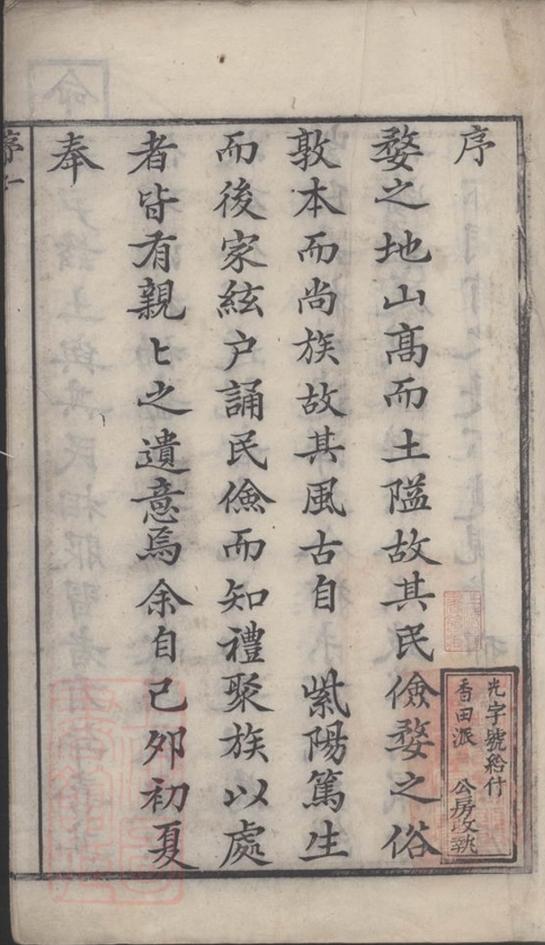 序
婺之地山高而土隘故其民儉婺之俗
敦本而尚族故其風古自　紫陽篤生
而後家絃户誦民儉而知禮聚族以處
者皆有親〻之遺意焉余自己夘初夏
奉
序一
光字號給付
香田派　公房收執
命